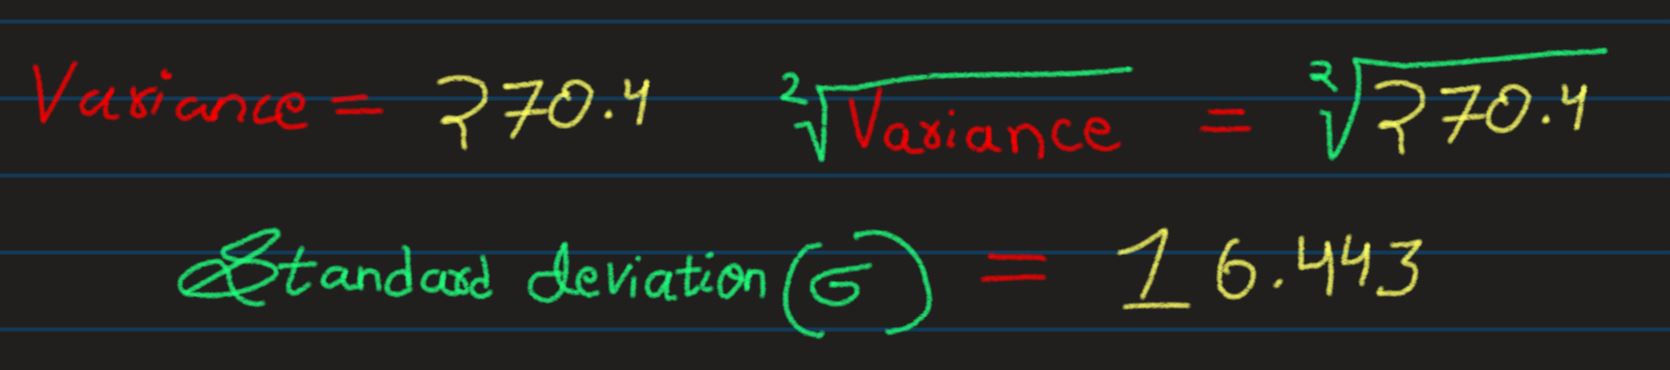 Variance = 270.4 ²√Variance = ²√270.4
Standard deviation (σ) = 16.443